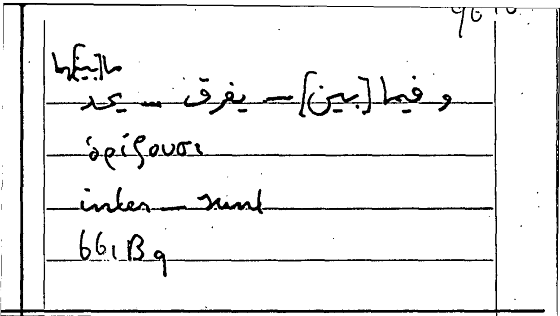 ما[بين]ها
و فيما [بين] – يفرق – يحد
ὁρίζουσι
inter — sunt
661 B 9